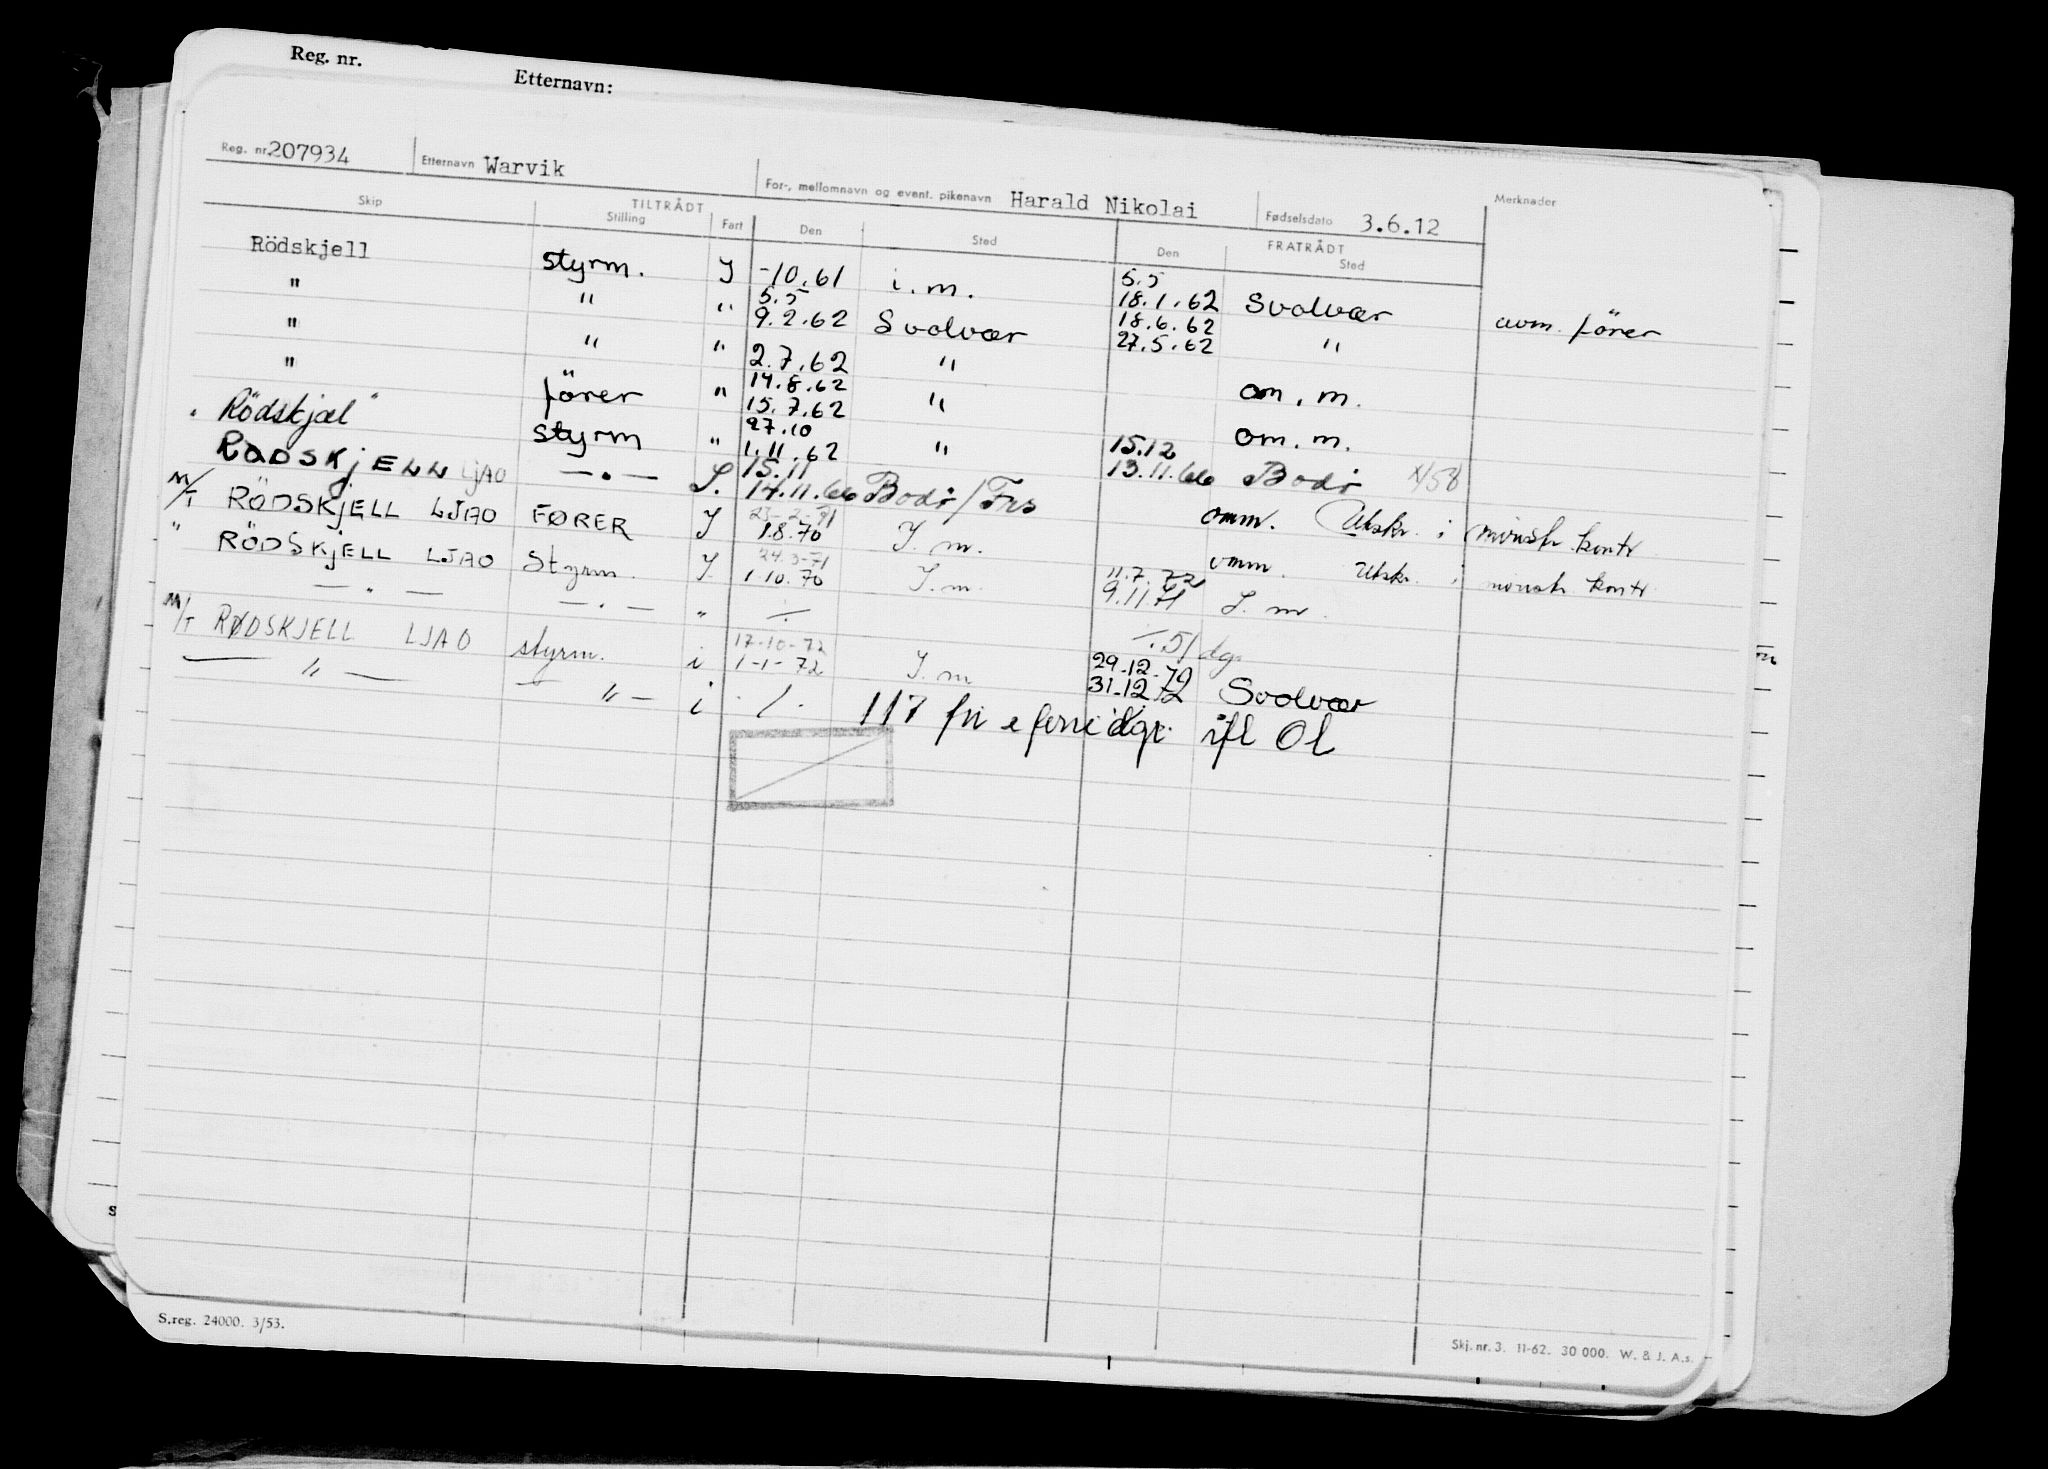 Reg. nr. Etternavn:
Reg. nr. 207934 Etternavn Warvik For-, mellomnavn og event. pikenavn Harald Nikolai Fødselsdato 3.6.12 Merknader
TILTRÅDT FRATRÅDT
Skip Stilling Fart Den Sted Den Sted
Rödskjell styrm. J -10.61 i.m. 5.5 18.1.62 Svolvær
" " " 5.5 9.2.62 Svolvær 18.6.62 27.5.62 " avm. förer
" " " 2.7.62 "
" förer " 14.8.62 15.7.62 " om.m.
Rödskjæl styrm " 27.10 1.11.62 " om.m.
RÖDSKJELL LJAO —"— 15.11 14.11.66 Bodø/ 15.12 13.11.66 Bodø
M/T RÖDSKJELL LJAO FØRER J 23-2-71 1.8.70 J.m. omm. Utskr. i mønstr. kontr
" RÖDSKJELL LJAO Styrm. J. 24.3-71 1.10.70 J.m. omm. Utskr. i mønstr kontr
— " — — " — " ÷ 11.7.72 9.11.71 J.m.
M/T RØDSKJELL LJAO styrm. i 17-10-72 1-1-72 J.m ÷ 51 dg.
— " — — " — i ./. 29.12.72 31.12.72 Svolvær
117 fri
S.reg. 24000. 3/53.
Skj. nr. 3. 11-62. 30 000. W. & J. A.s.